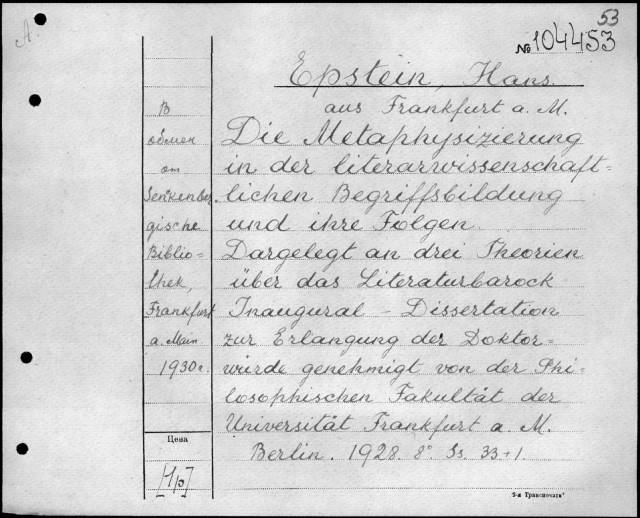 A.
53
№ 104453
Epstein, Hans.
aus Frankfurt a. M.
Die Metaphysizierung
in der literarwissenschaft=
lichen Begriffsbildung
und ihre Folgen.
Dargelegt an drei Theorien
über das Literaturbarock
Inaugural-Dissertation
zur Erlangung der Doktor=
würde genehmigt von der Phi=
losophischen Fakultät der
Universität Frankfurt a. M.
Berlin. 1928. 8° Ss. 33+1.
В
обмен
от
Senkenber
gische
Biblio=
thek,
Frankfurt
a. Main
1930 г.
Цена